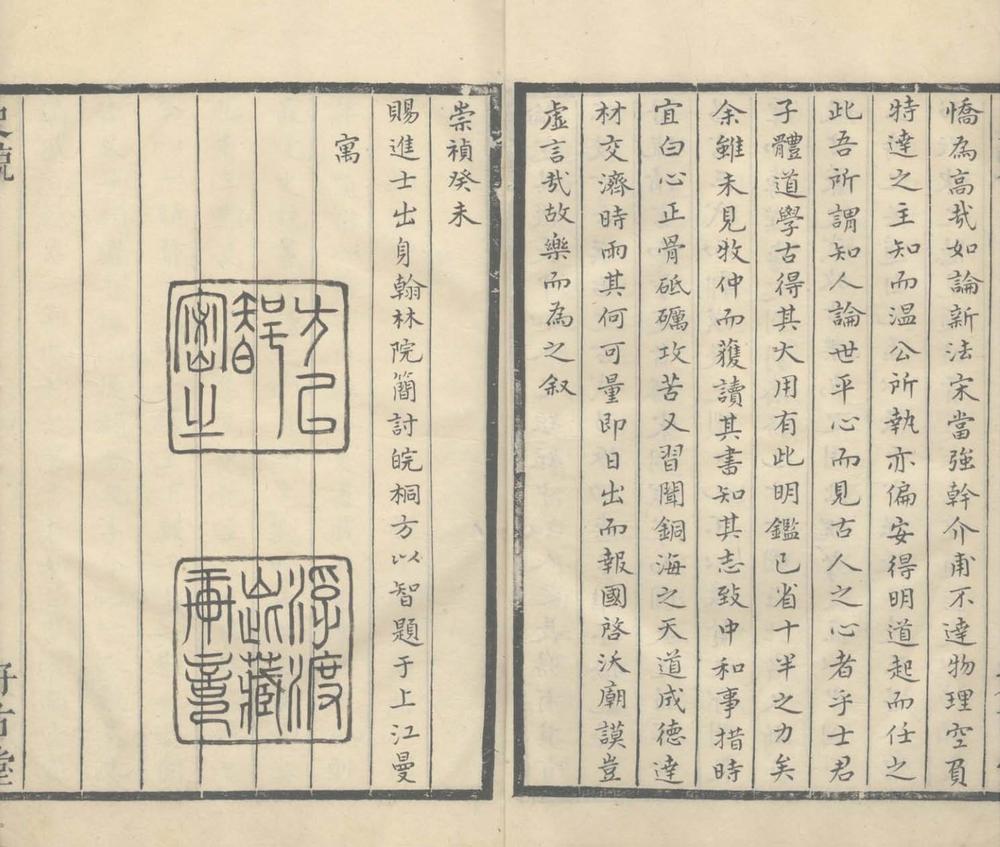 憍為高㢤如論新法宋當強幹介甫不達物理空負
特達之主知而温公所執亦偏安得明道起而任之
此吾所謂知人論世平心而見古人之心者乎士君
子體道學古得其大用有此明鑑已省十半之力矣
余雖未見牧仲而蒦讀其書知其志致中和事措時
宜白心正骨砥礪攻苦又習聞銅海之天道成德達
材交濟時雨其何可量即日出而報國啓沃廟謨豈
虛言㢤故樂而為之叙
崇禎癸未
賜進士出身翰林院簡討皖桐方以智題于上江曼
寓
方以智
密之
浮渡
此藏
軒
好古堂